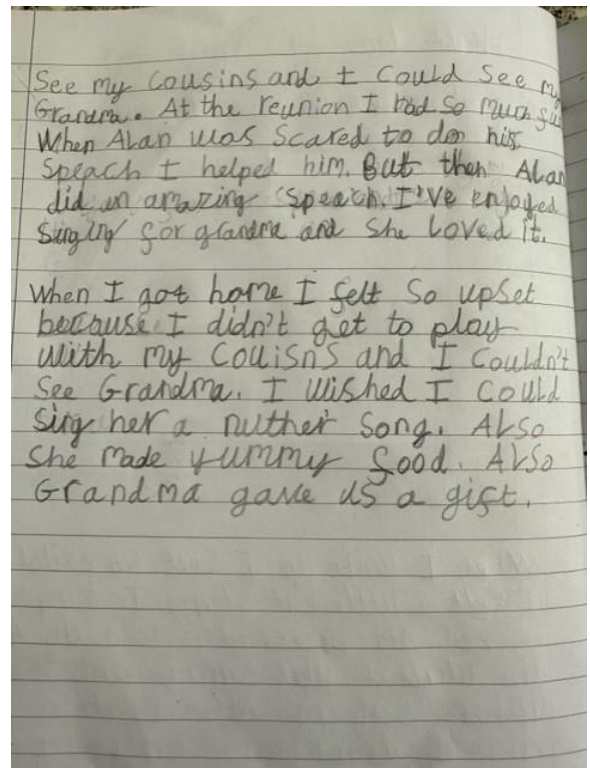 See my cousins and I could see my
Grandma. At the reunion I had so much fun
When Alan was scared to do his
Speach I helped him. But then Alan
did an amazing Speach. I've enjoyed
Singing for grandma and she loved it.
When I got home I felt so upset
because I didn't get to play
with my Couisns and I Couldn't
See Grandma. I wished I could
sing her a nuther song. Also
she made yummy food. Also
Grandma gave us a gift.